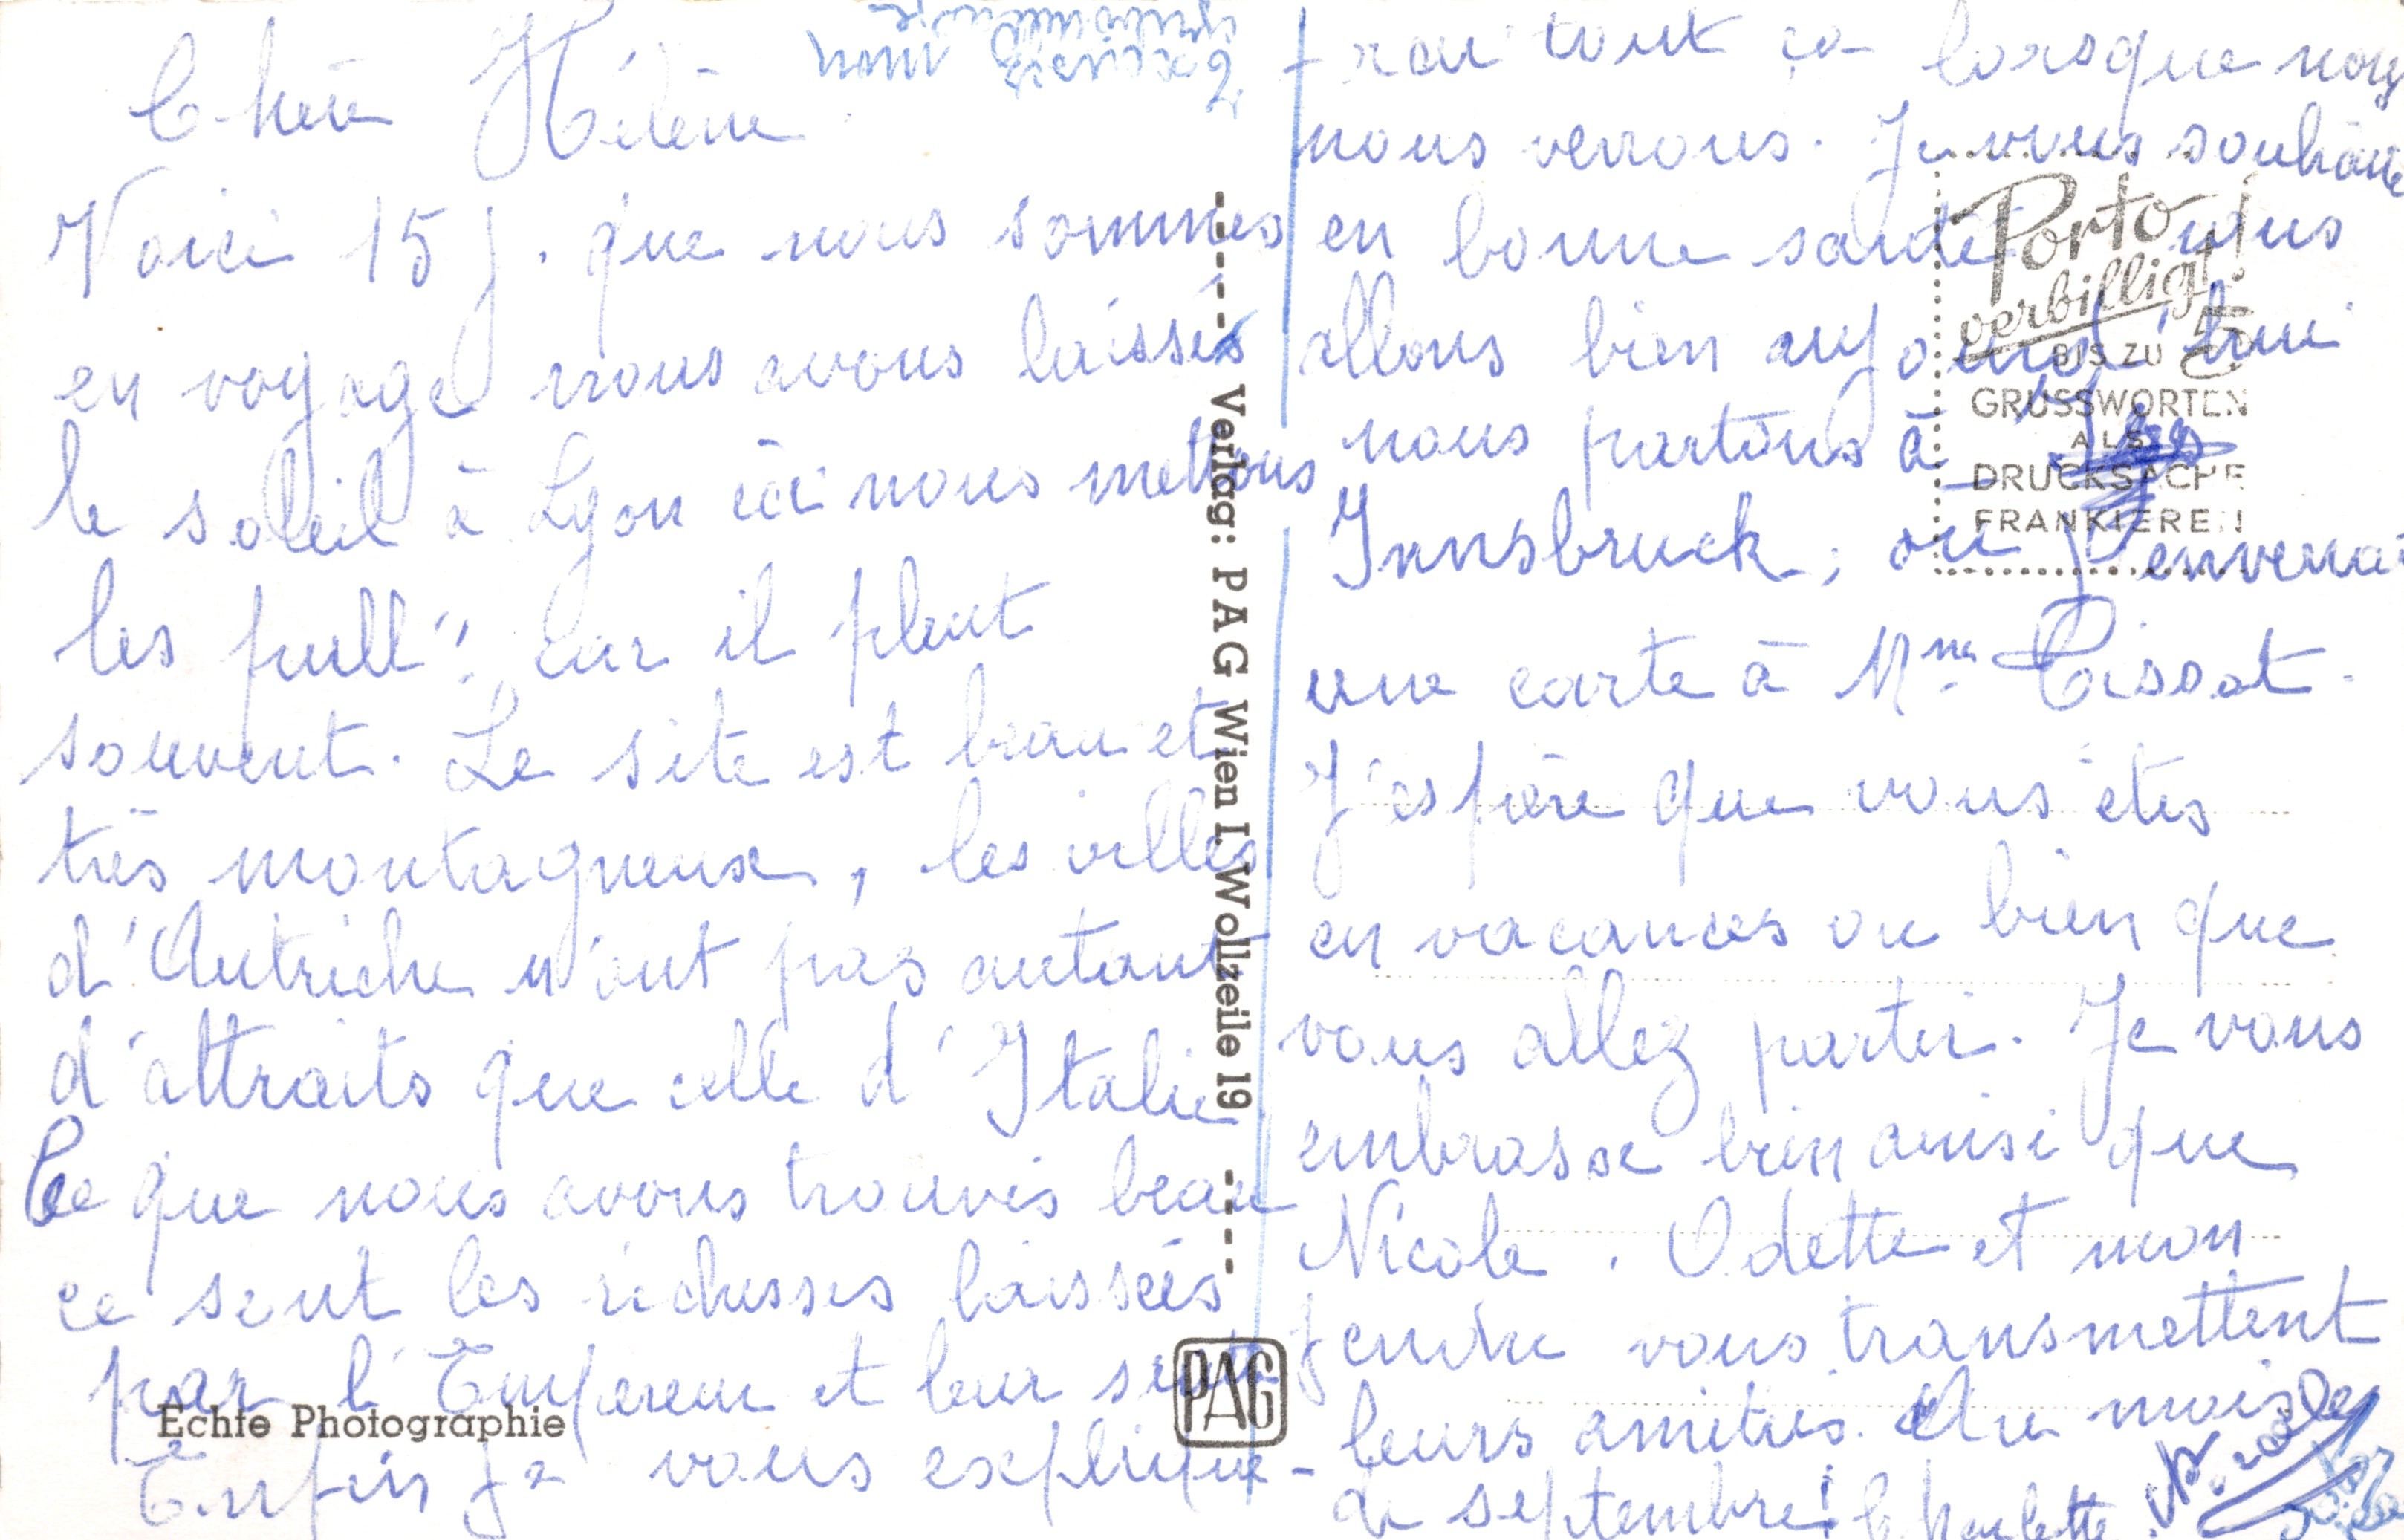 Chère Hélène
Voici 15 j. que nous sommes
en voyage nous avons laissés
le soleil à Lyon ici nous mettons
les pull" car il pleut
souvent. Le site est beau et
très montagneux, les villes
d'Autriche n'ont pas autant
d'attraits que celle d'Italie
Ce que nous avons trouvés beau
ce sont les richesses laissées
par l'Empereur et leur suite
Enfin je vous explique-
rai tout ça lorsque nous
nous verrons. Je vous souhaite
en bonne santé nous
allons bien aujourd'hui
nous partons à
Innsbruck, où j'enverrai
une carte à Mme Tissot.
J'espère que vous êtes
en vacances ou bien que
vous allez partir. Je vous
embrasse bien ainsi que
Nicole. Odette et mon
gendre vous transmettent
leurs amitiés. Au mois
de septembre!
Excusez mon
Porto
verbilligt!
BIS ZU 5
GRUSSWORTEN
ALS
DRUCKSACHE
FRANKIEREN
Verlag: PAG Wien I. Wollzeile 19
PAG
Echte Photographie